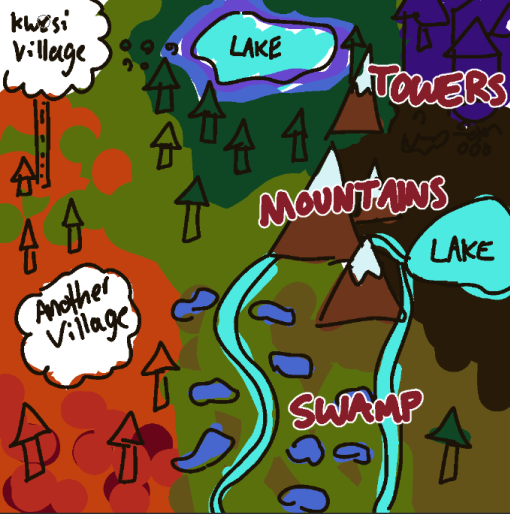 kwesi
village
LAKE
TOWERS
MOUNTAINS
LAKE
Another
Village
SWAMP